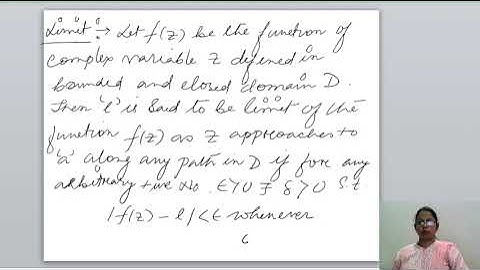 Limit :→ Let f(z) be the function of
complex variable z defined in
bounded and closed domain D.
Then 'l' is said to be limit of the
function f(z) as z approaches to
'a' along any path in D if for any
arbitrary +ive no. ε>0 ∃ δ>0 s.t
|f(z) - l| < ε whenever
6